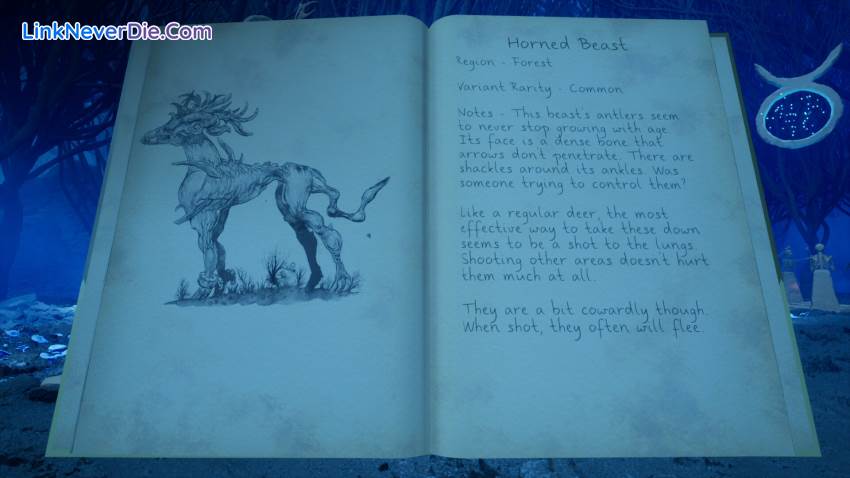 LinkNeverDie.Com
Horned Beast
Region - Forest
Variant Rarity - Common
Notes - This beast's antlers seem
to never stop growing with age
Its face is a dense bone that
arrows don't penetrate. There are
shackles around its ankles. Was
someone trying to control them?
Like a regular deer, the most
effective way to take these down
seems to be a shot to the lungs.
Shooting other areas doesn't hurt
them much at all.
They are a bit cowardly though.
When shot, they often will flee.